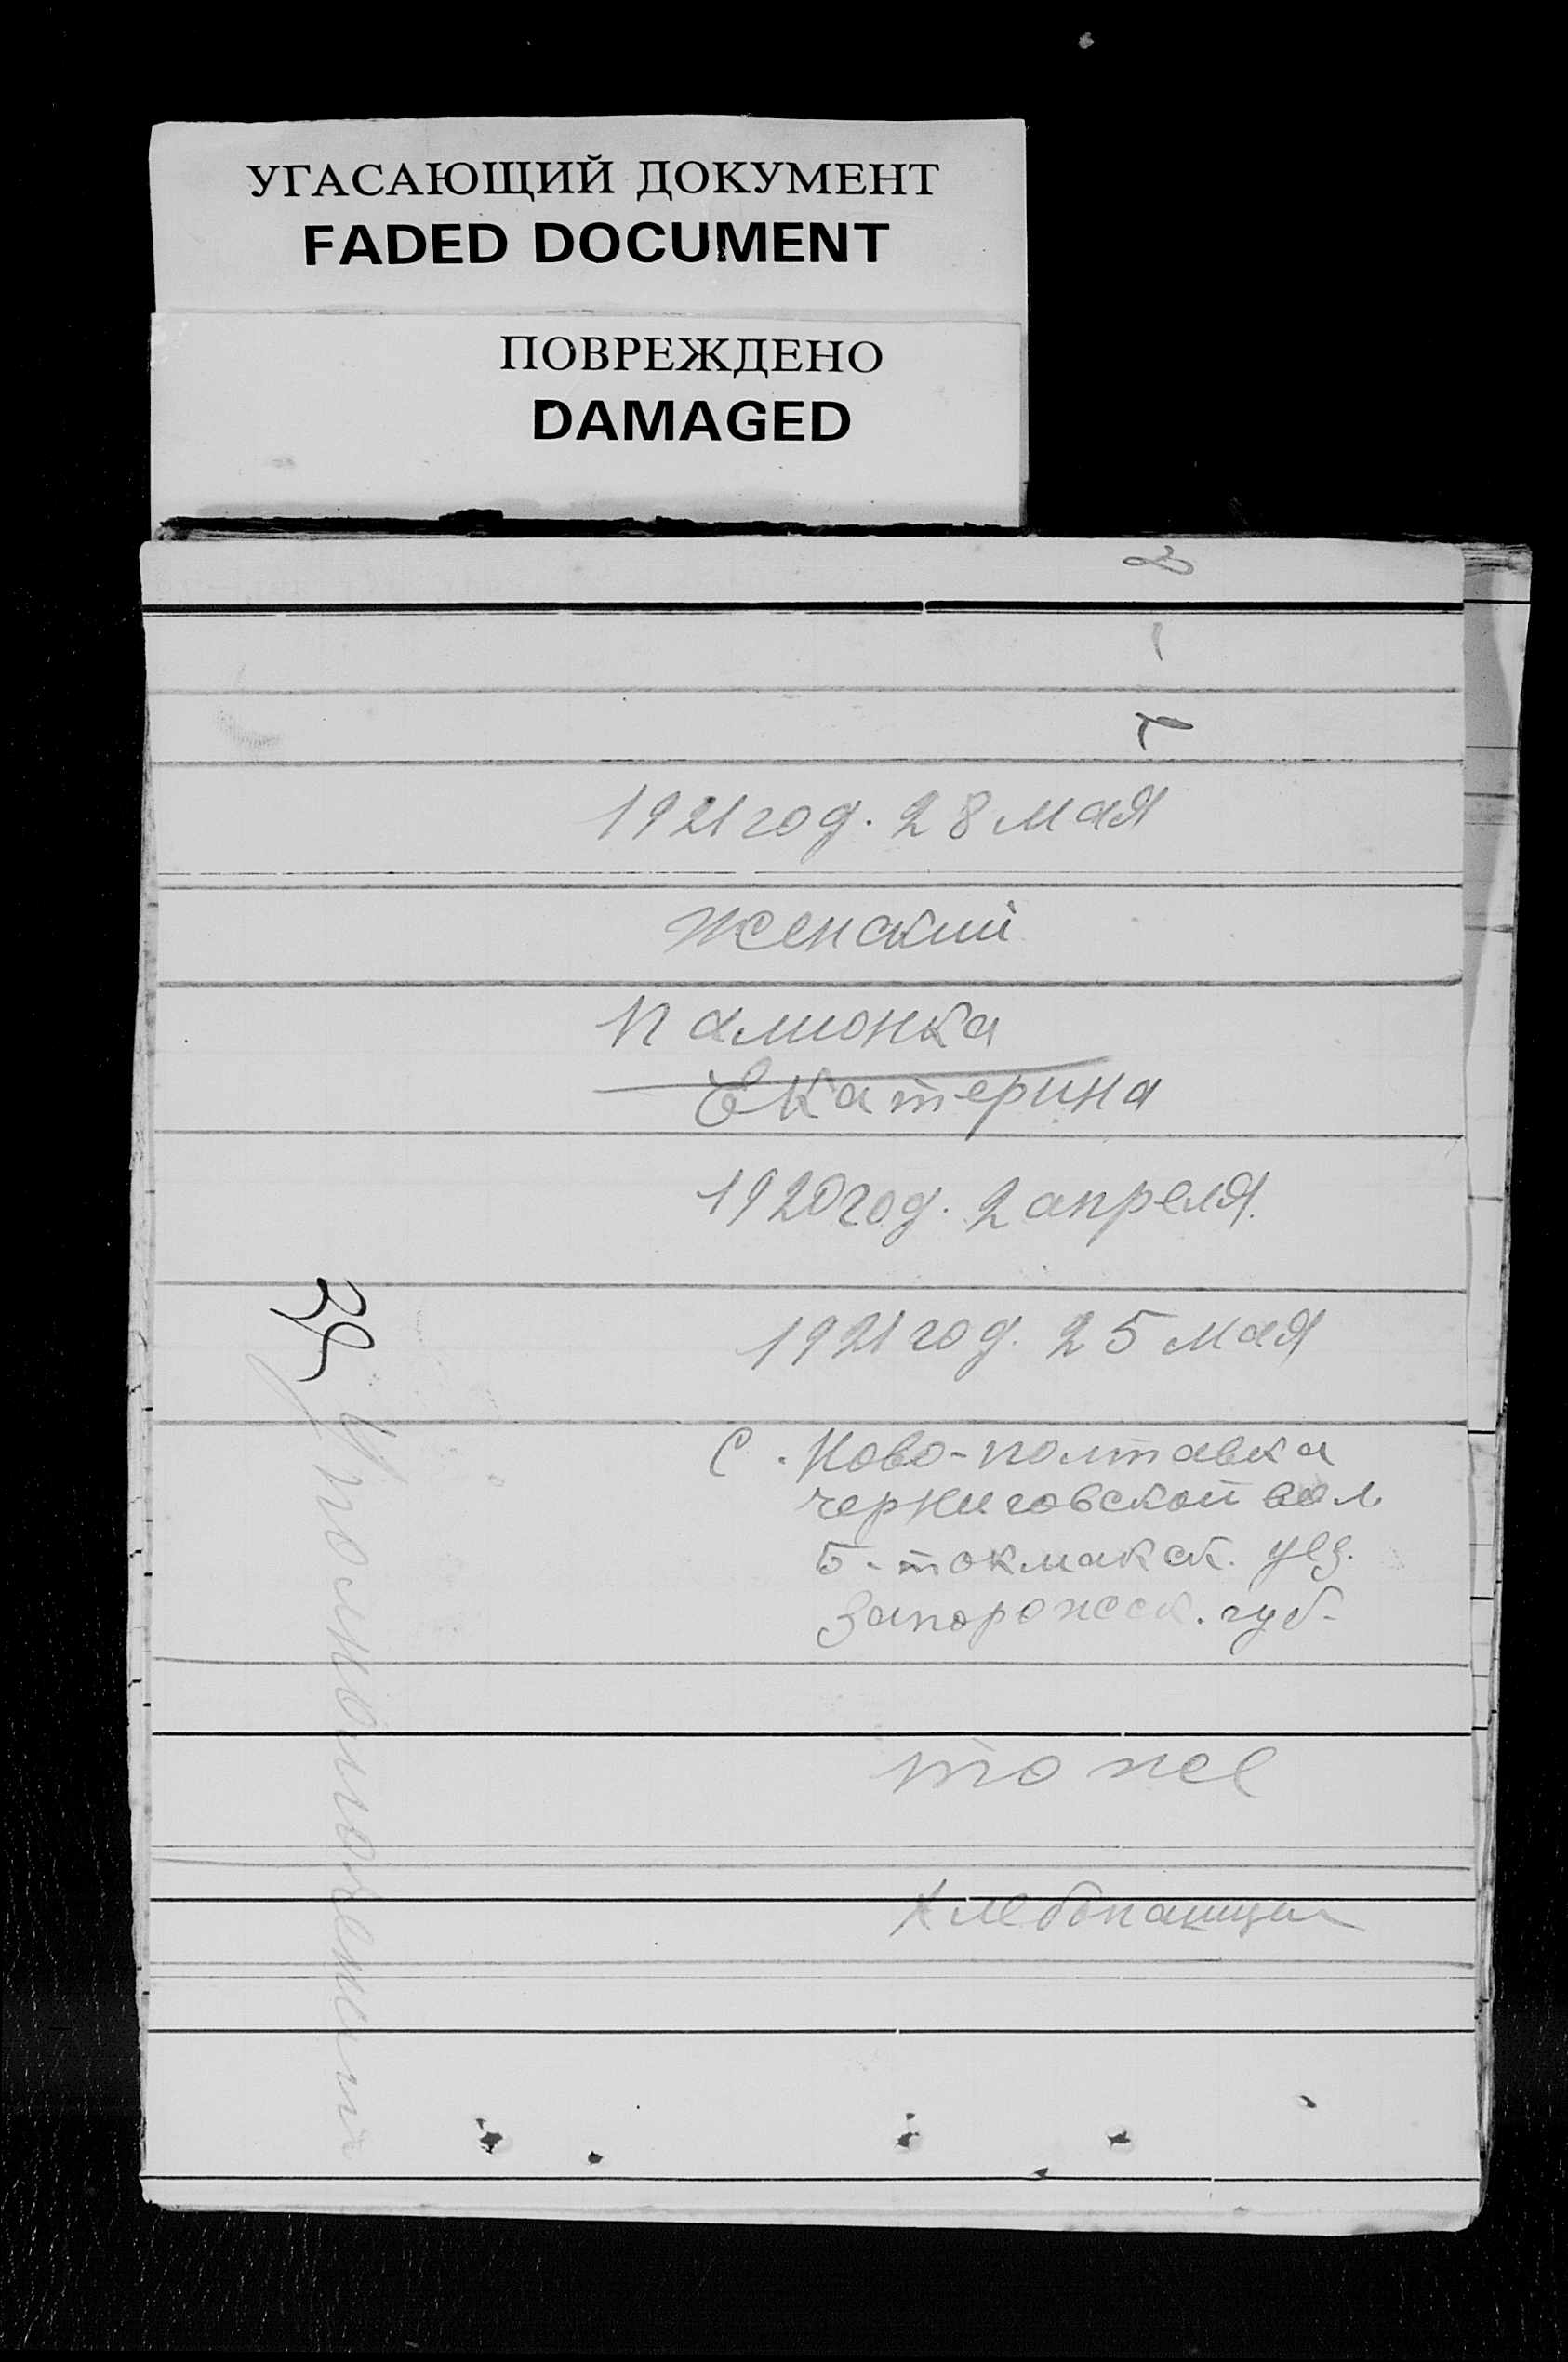 УГАСАЮЩИЙ ДОКУМЕНТ
FADED DOCUMENT
ПОВРЕЖДЕНО
DAMAGED
1921 год. 28 мая
женский
Екатерина
1920 год. 2 апреля.
1921 год. 25 мая
с. Ново-полтавка
черниговской вол
Б-токмакск. уез.
Запорожск. губ.
то же